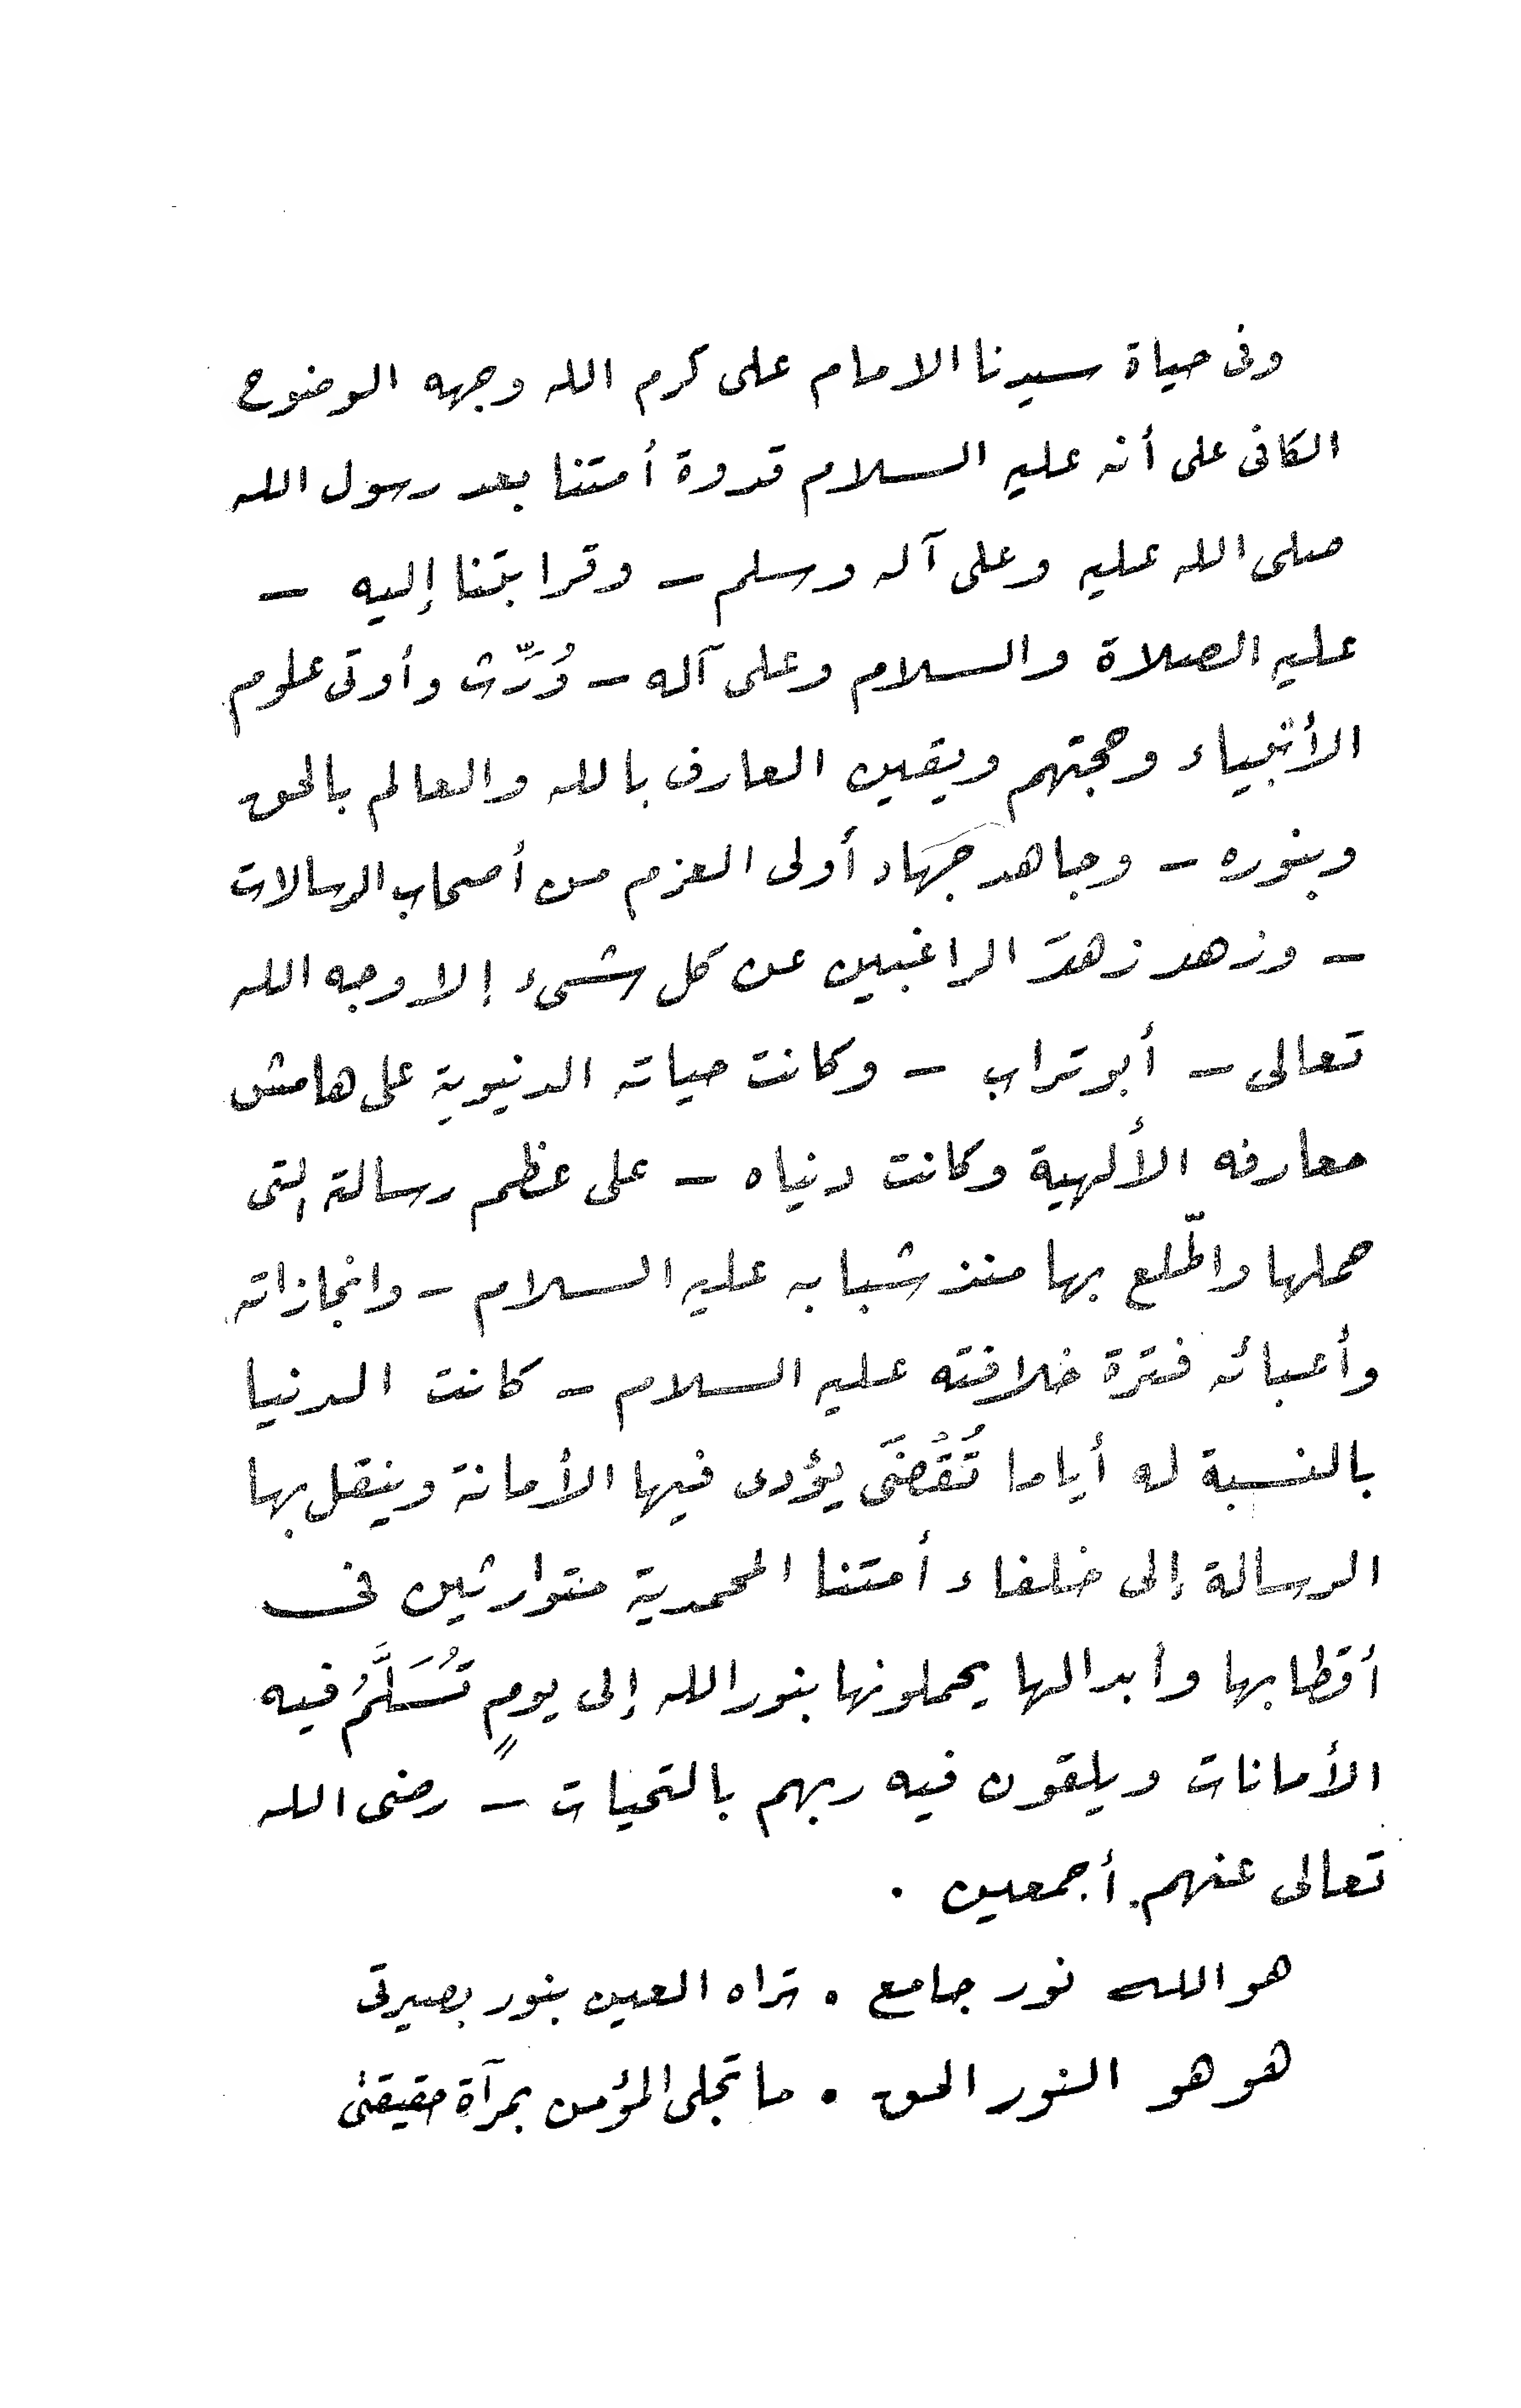 وفى حياة سيدنا الامام على كرم الله وجهه الوضوح
الكافى على أنه عليه السلام قدوة أمتنا بعد رسول الله
صلى الله عليه وعلى آله وسلم - وقرابتنا إليه -
عليه الصلاة والسلام وعلى آله - وُرِّث وأوتى علوم
الأنبياء وحجتهم ويقين العارف بالله والعالم بالحق
وبنوره - وجاهد جهَاد أولى العزم من أصحاب الرسالات
- وزهد زهدَ الراغبين عن كل شىء إلا وجه الله
تعالى - أبو تراب - وكانت حياته الدنيوية على هامش
معارفه الألهية وكانت دنياه - على عظم رسالته التى
حملها واطّلع بها منذ شبابه عليه السلام - وانجازاته
وأعبائه فترة خلافته عليه السلام - كانت الدنيا
بالنسبة له أياما تُقْضَى يؤدى فيها الأمانة وينقل بها
الرسالة إلى خلفاء أمتنا المحمدية متوارثين فى
أقطابها وأبدالها يحملونها بنور الله إلى يومٍ تُسَلَّمُ فيه
الأمانات ويلقون فيه ربهم بالتحيات - رضى الله
تعالى عنهم أجمعين .
هو الله نور جامع . تراه العين بنور بصيرتى
هو هو النور الحق . ما تجلى المؤمن بمرآة حقيقتى